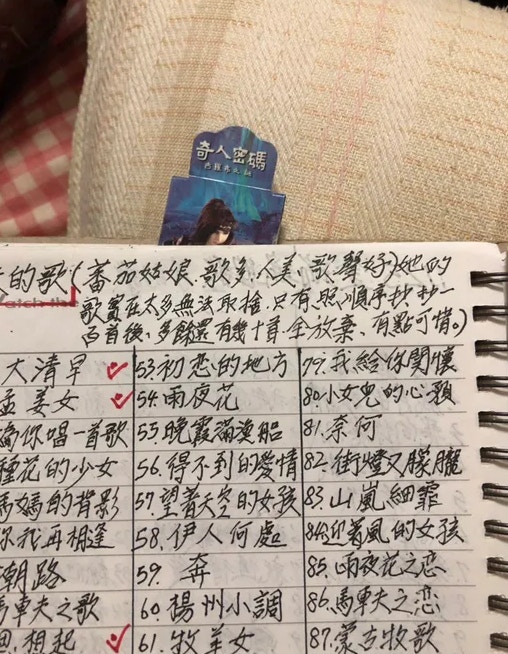 奇人密碼
的歌(蕃茄姑娘、歌多、人美、歌聲好)她的
歌實在太多無法取捨、只有照順序抄抄一
百首後、多餘還有幾十首、全放棄、有點可惜。)
大清早
孟姜女
為你唱一首歌
種花的少女
媽媽的背影
你我再相逢
潮路
馬車夫之歌
想起
53.初恋的地方
54.雨夜花
55.晚霞滿漁船
56.得不到的愛情
57.望著天空的女孩
58.伊人何處
59.奔
60.楊州小調
61.牧羊女
79.我給你關懷
80.小女兒的心願
81.奈何
82.街燈又朦朧
83.山嵐細霏
84.迎着風的女孩
85.雨夜花之恋
86.馬車夫之恋
87.蒙古牧歌